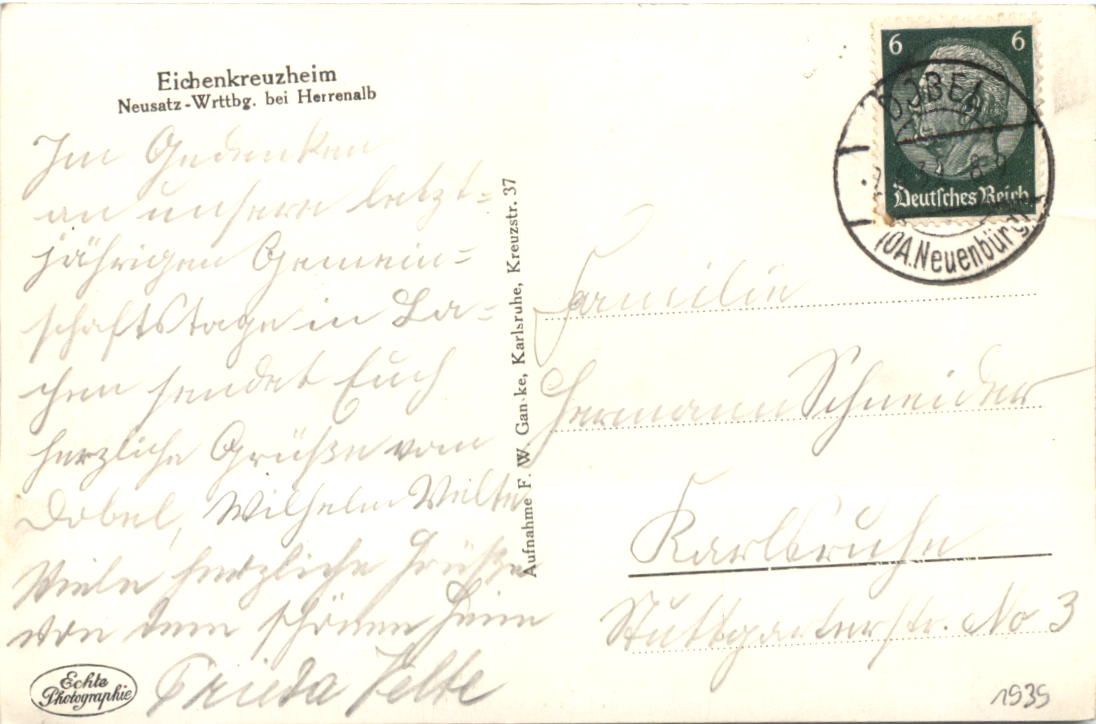 Eichenkreuzheim
Neusatz-Wrttbg. bei Herrenalb
Im Gedenken
an unsere letzt=
jährigen Gemein=
schaftstage in La=
chen sendet Euch
herzliche Grüße vom
Dobel, Wilhelm Velte
Viele herzliche Grüße
von dem schönen Heim
Frieda Velte
Echte
Photographie
Aufnahme F. W. Ganske, Karlsruhe, Kreuzstr. 37
6 6
Deutsches Reich
DOBEL
8-9
(OA. Neuenbürg)
Familie
Hermann Schneider
Karlsruhe
Stuttgarterstr. No 3
1935